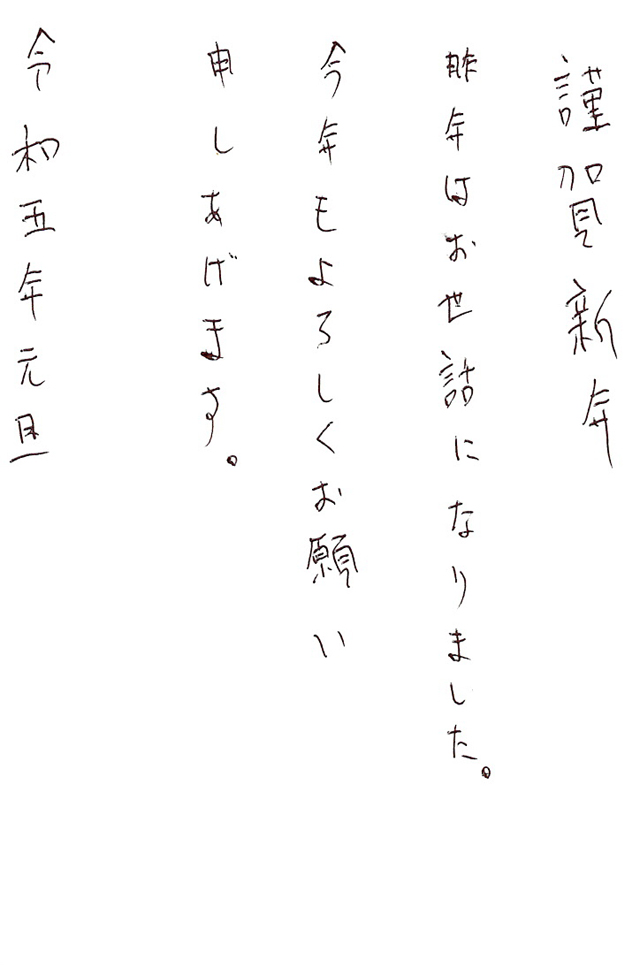 謹賀新年
昨年はお世話になりました。
今年もよろしくお願い
申しあげます。
令和五年元旦